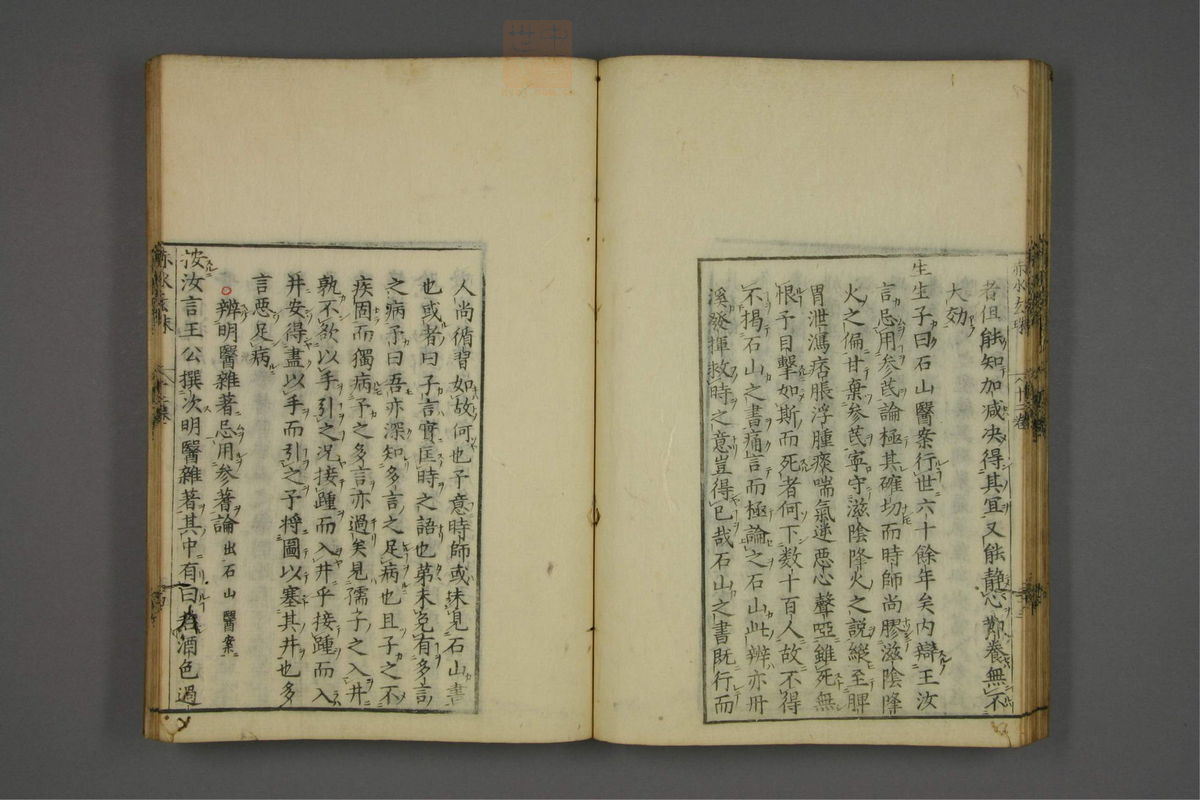 者但能知加减决得其宜又能静心節養無不
大効
生生子曰石山醫案行世六十餘年矣内辯王汝
言忌用参芪論極其確切而時師尚膠滋陰降
火之偏甘棄参芪寧守滋陰降火之説縱至脾
胃泄瀉痞脹浮腫痰喘氣逆惡心聲啞雖死無
恨予目擊如斯而死者何下数十百人故不得
不揭石山之書痛言而極論之石山此辨亦冊
溪發揮救時之意豈得已哉石山之書既行而
人尚循習如故何也予意時師或未見石山書
也或者曰子言實匡時之語也第未免有多言
之病予曰吾亦深知多言之足病也且子之不
疾固而獨病予之多言亦過矣見孺子之入井
孰不欲以手引之况接踵而入井乎接踵而入
井安得盡以手而引之予將圖以塞其井也多
言惡足病
辨明醫雜著忌用参蓍論 出石山醫案
按汝言王公撰次明醫雜著其中有曰若酒色過